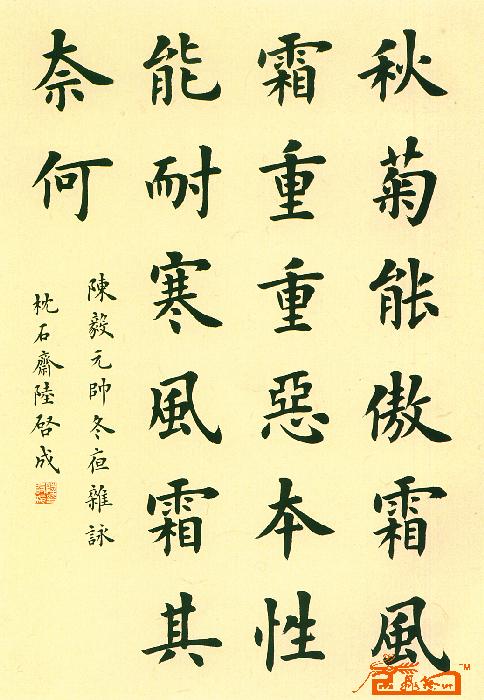 秋菊能傲霜風
霜重重惡本性
能耐寒風霜其
奈何
陳毅元帥冬夜雜詠
枕石齋陸啓成